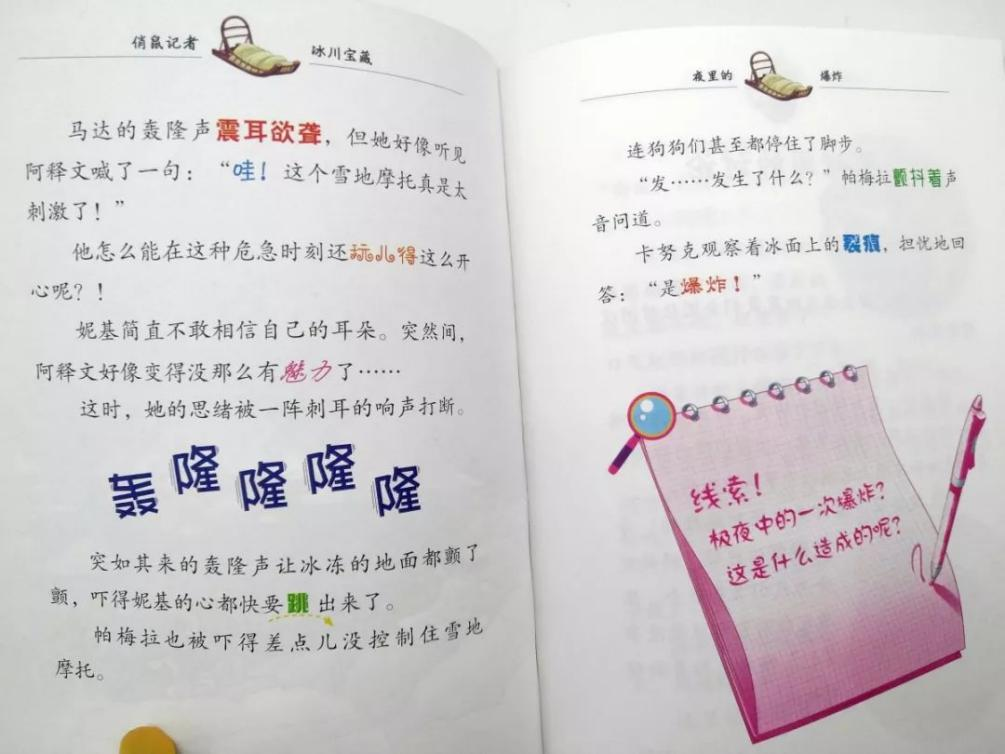 俏鼠记者 冰川宝藏
马达的轰隆声震耳欲聋，但她好像听见
阿释文喊了一句：“哇！这个雪地摩托真是太
刺激了！”
他怎么能在这种危急时刻还玩儿得这么开
心呢？！
妮基简直不敢相信自己的耳朵。突然间，
阿释文好像变得没那么有魅力了……
这时，她的思绪被一阵刺耳的响声打断。
轰隆隆隆隆
突如其来的轰隆声让冰冻的地面都颤了
颤，吓得妮基的心都快要跳出来了。
帕梅拉也被吓得差点儿没控制住雪地
摩托。
夜里的 爆炸
连狗狗们甚至都停住了脚步。
“发……发生了什么？”帕梅拉颤抖着声
音问道。
卡努克观察着冰面上的裂痕，担忧地回
答：“是爆炸！”
线索！
极夜中的一次爆炸？
这是什么造成的呢？